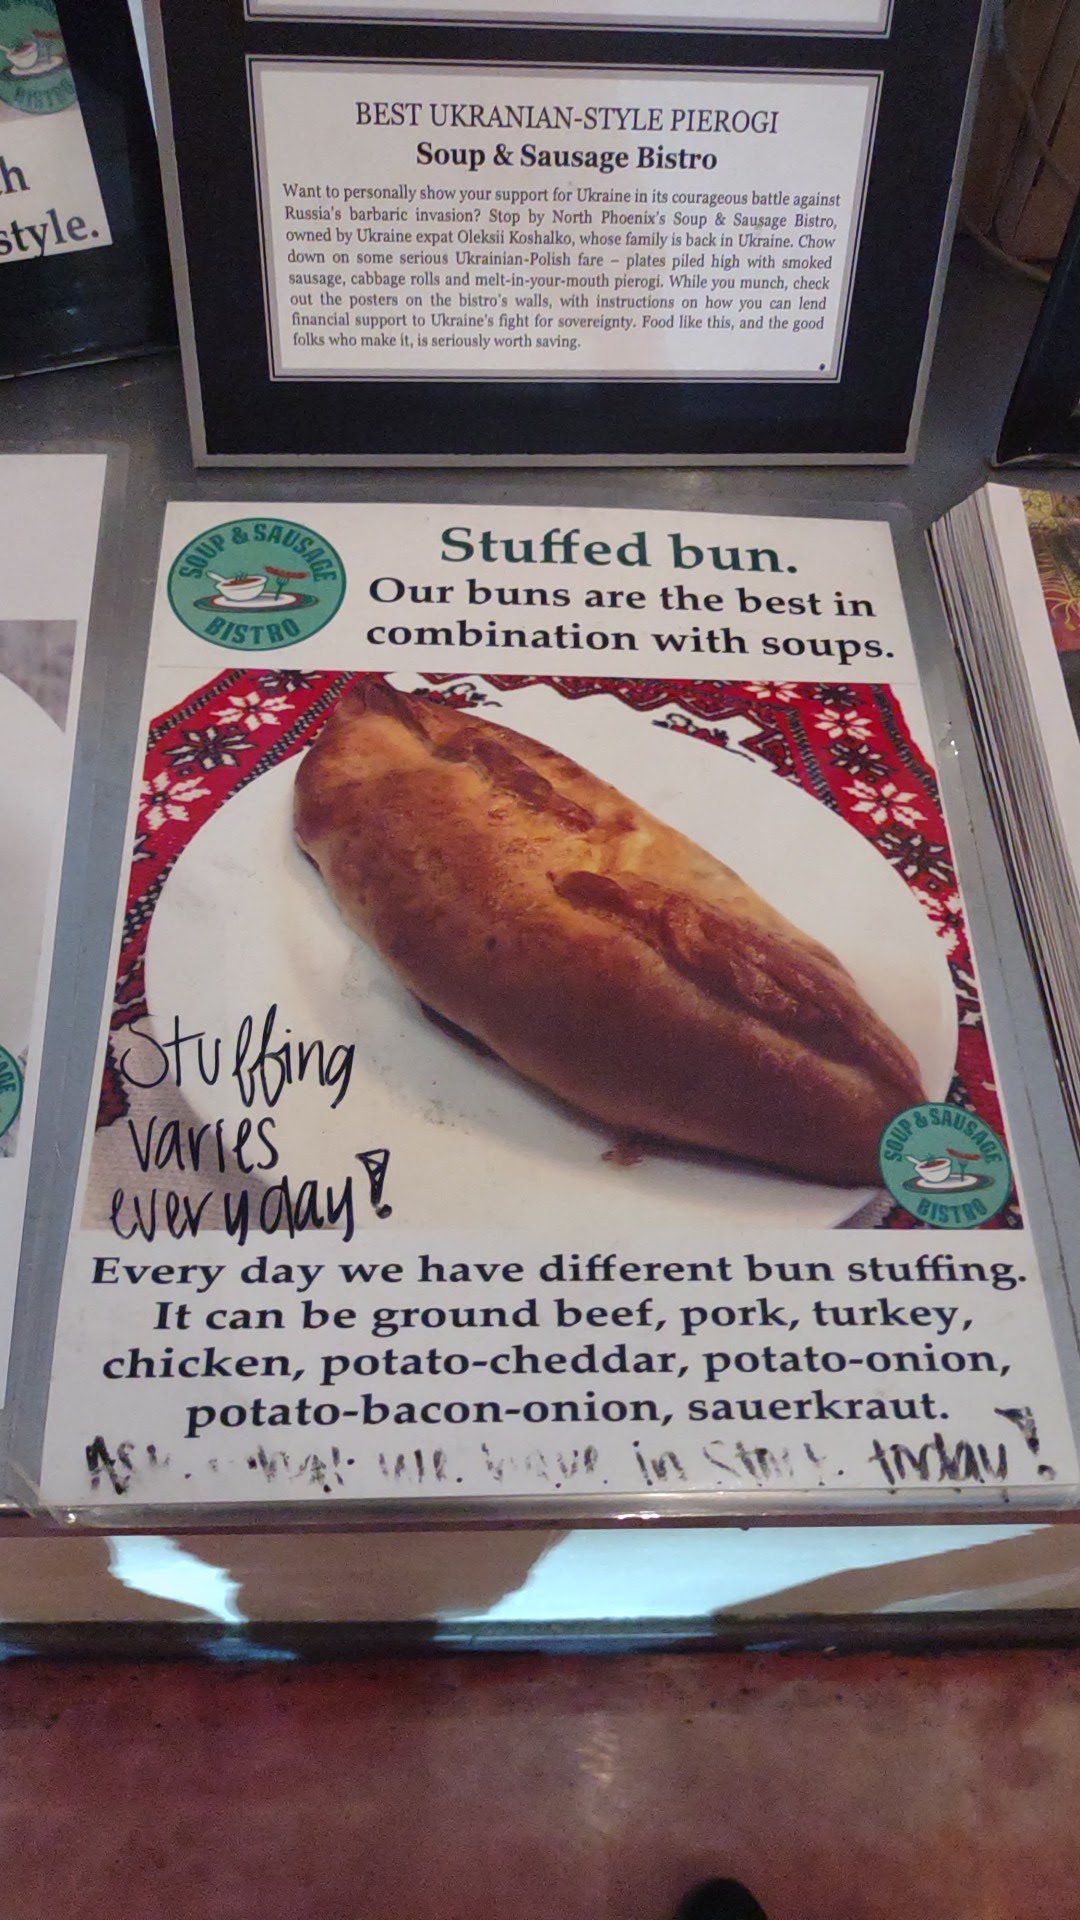 BISTRO
h
style.
BEST UKRANIAN-STYLE PIEROGI
Soup & Sausage Bistro
Want to personally show your support for Ukraine in its courageous battle against
Russia's barbaric invasion? Stop by North Phoenix's Soup & Sausage Bistro,
owned by Ukraine expat Oleksii Koshalko, whose family is back in Ukraine. Chow
down on some serious Ukrainian-Polish fare – plates piled high with smoked
sausage, cabbage rolls and melt-in-your-mouth pierogi. While you munch, check
out the posters on the bistro's walls, with instructions on how you can lend
financial support to Ukraine's fight for sovereignty. Food like this, and the good
folks who make it, is seriously worth saving.
SOUP & SAUSAGE
BISTRO
Stuffed bun.
Our buns are the best in
combination with soups.
Stuffing
varies
everyday!
SOUP & SAUSAGE
BISTRO
Every day we have different bun stuffing.
It can be ground beef, pork, turkey,
chicken, potato-cheddar, potato-onion,
potato-bacon-onion, sauerkraut.
Ask what we have in today!